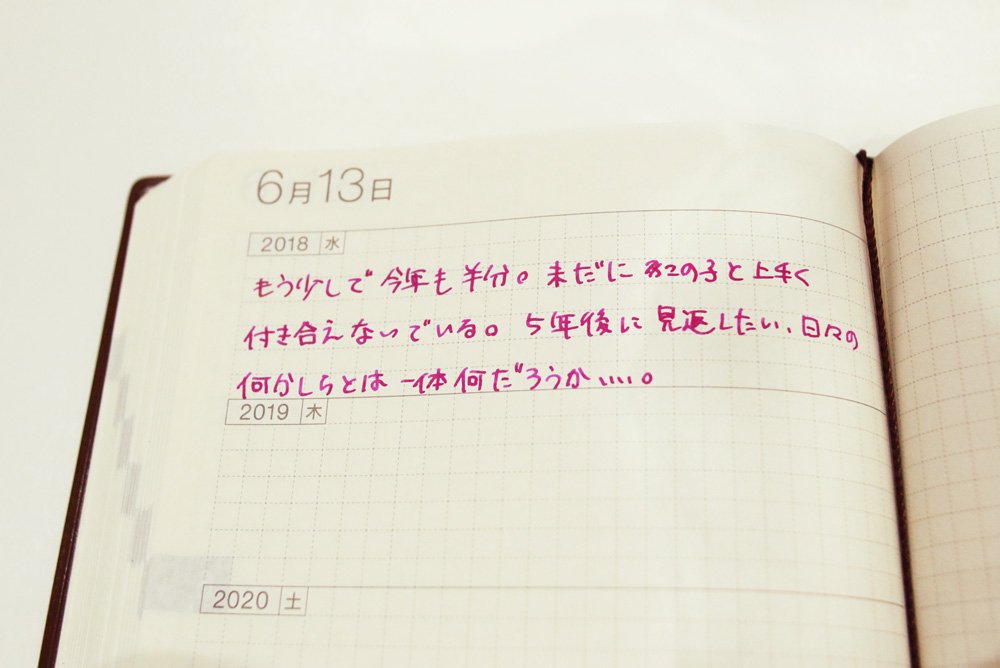 6月13日
2018 水
もう少しで今年も半分。未だに の子と上手く
付き合えないでいる。5年後に見返したい、日々の
何かしらとは一体何だろうか、、、、。
2019 木
2020 土